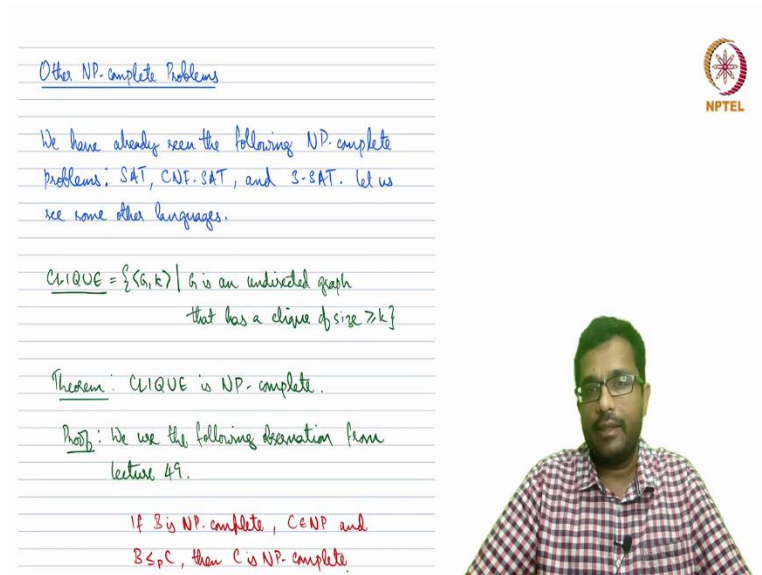 Other NP-complete Problems
NPTEL
We have already seen the following NP-complete
problems: SAT, CNF-SAT, and 3-SAT. Let us
see some other languages.
CLIQUE = {⟨G, k⟩ | G is an undirected graph
that has a clique of size ≥ k}
Theorem: CLIQUE is NP-complete.
Proof: We use the following observation from
lecture 49.
If B is NP-complete, C ∈ NP and
B ≤p C, then C is NP-complete